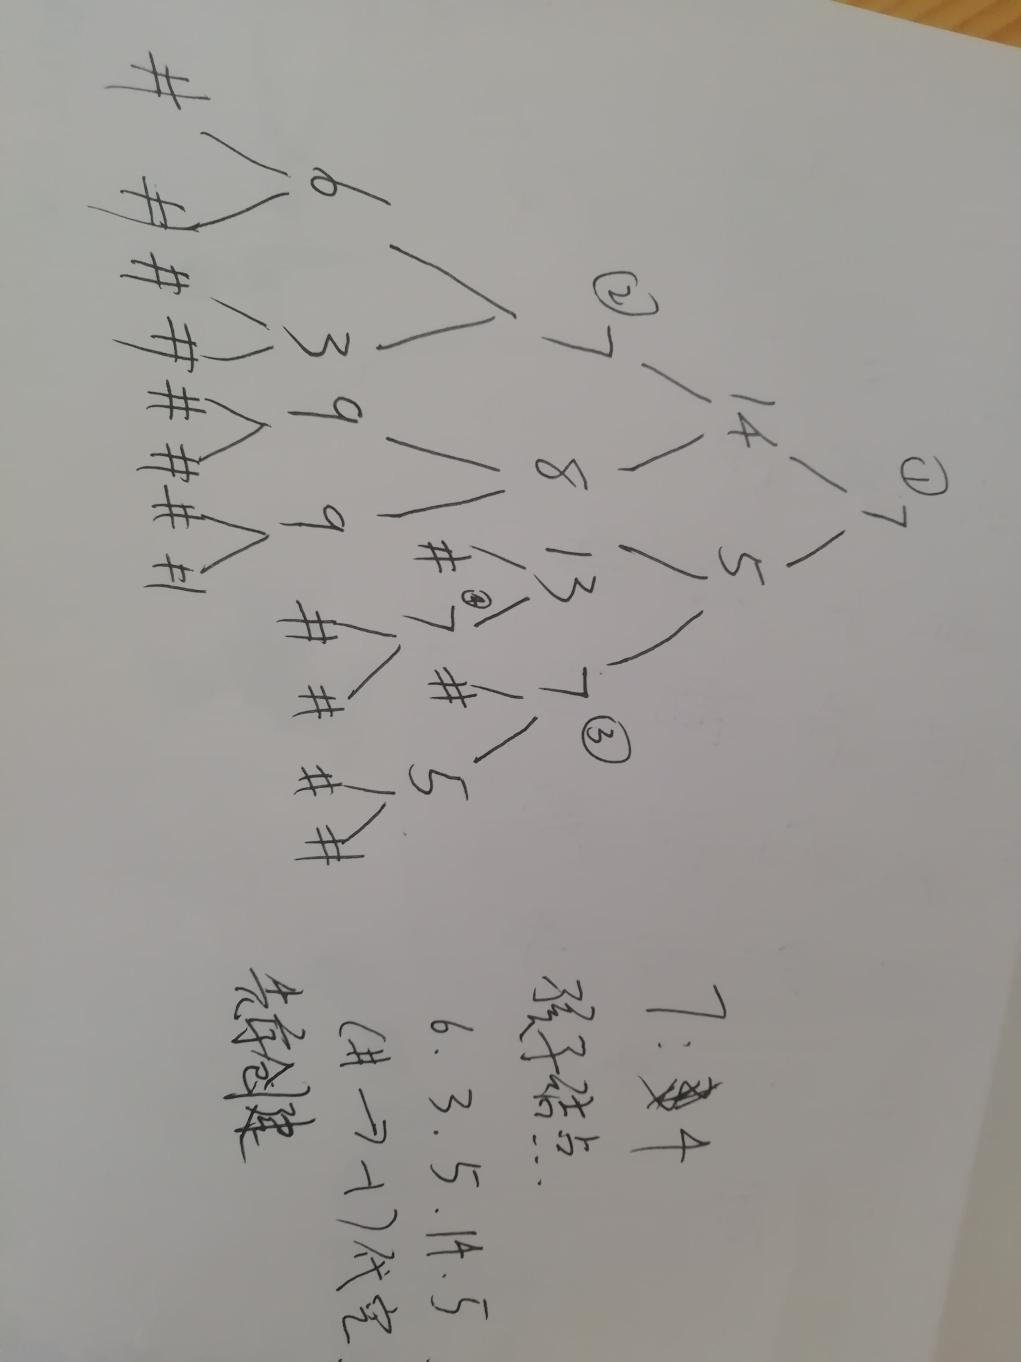 ① 7
14 5
② 7 8 13 7 ③
6 3 9 9 # ④ 7 # 5
# # # # # # # # # # # #
7: 4
孩子结点:
6. 3. 5. 14. 5
(# → -1)代空
先序创建